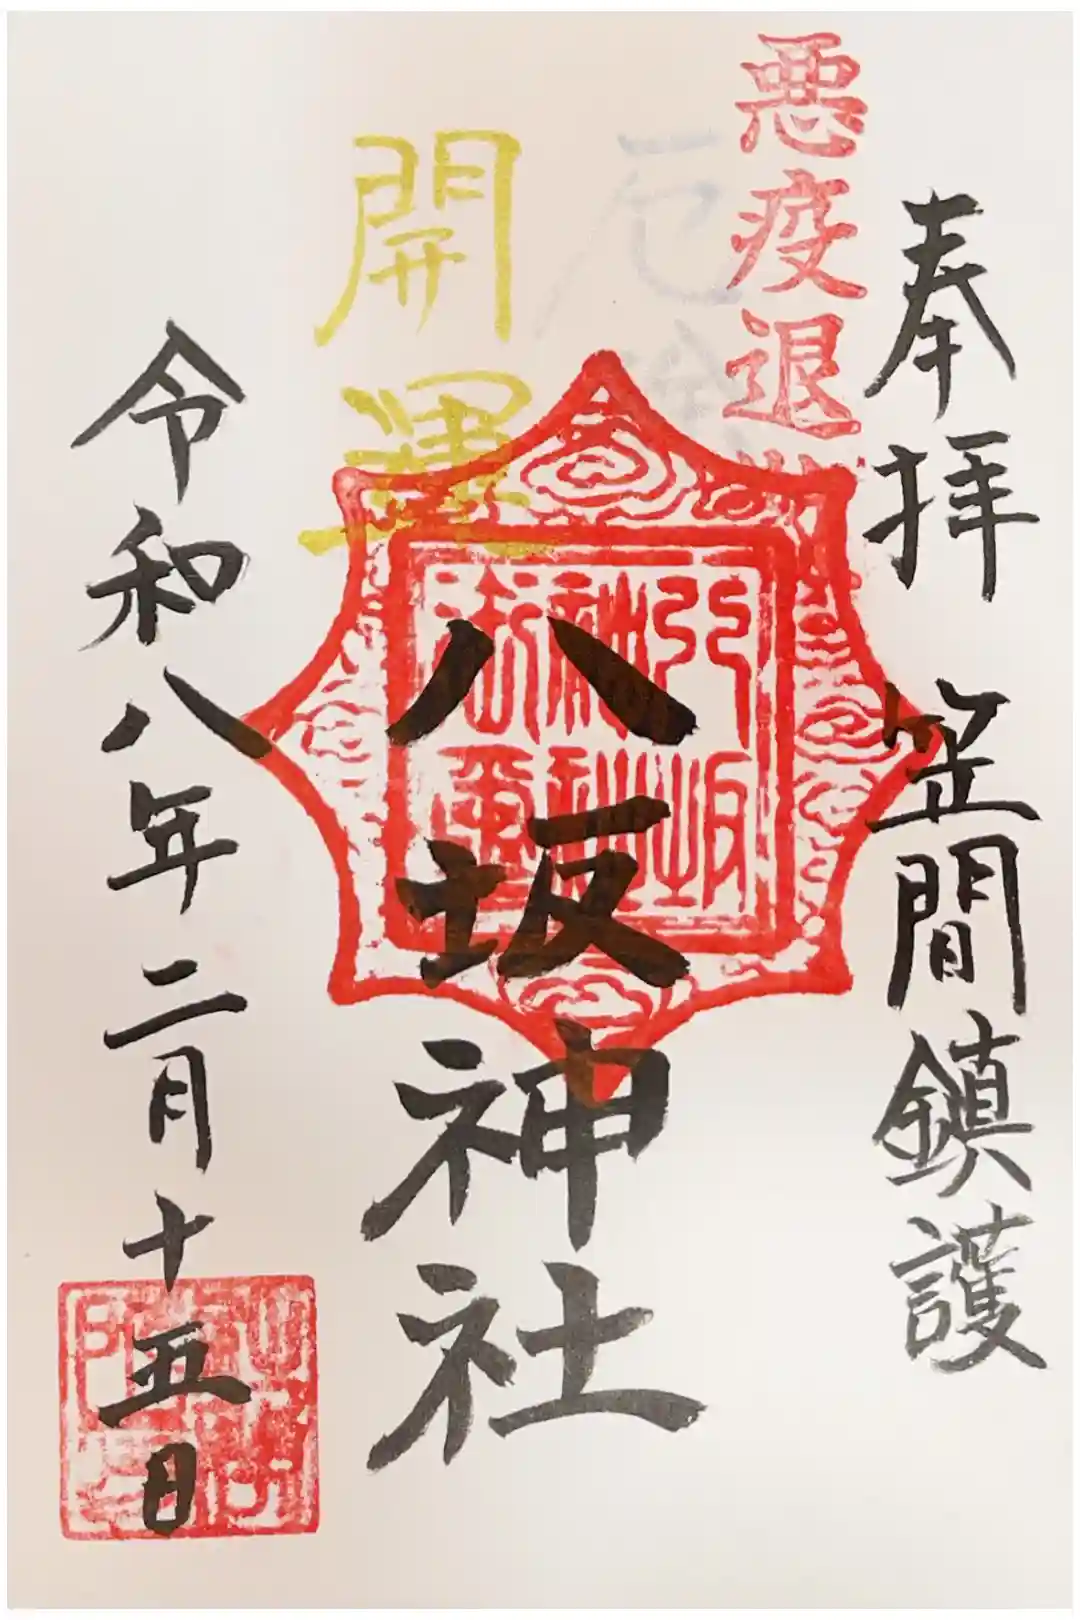 奉拝 笠間鎮護
悪疫退散
厄除
開運
八坂神社
令和八年二月十五日